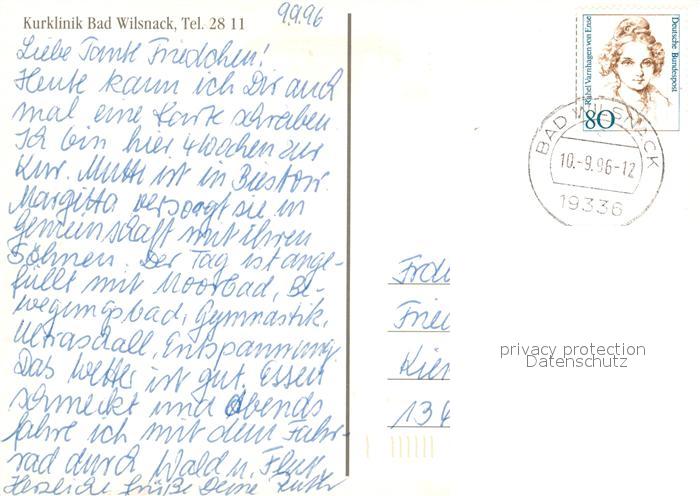 Kurklinik Bad Wilsnack, Tel. 28 11
9.9.96
Liebe Tante Friedchen!
Heute kann ich Dir auch
mal eine Karte schreiben.
Ich bin hier 4 Wochen zur
Kur. Mutti ist in Biestow.
Margitta versorgt sie in
Gemeinschaft mit ihren
Söhnen. Der Tag ist ange-
füllt mit Moorbad, Be-
wegungsbad, Gymnastik,
Ultraschall, Entspannung.
Das Wetter ist gut. Essen
schmeckt und abends
fahre ich mit dem Fahr-
rad durch Wald u. Flur.
Herzliche Grüße Deine
Rahel Varnhagen von Ense
Deutsche Bundespost
80
BAD WILSNACK
10.-9.96-12
19336
Frau
Fried
Kie
134
privacy protection
Datenschutz